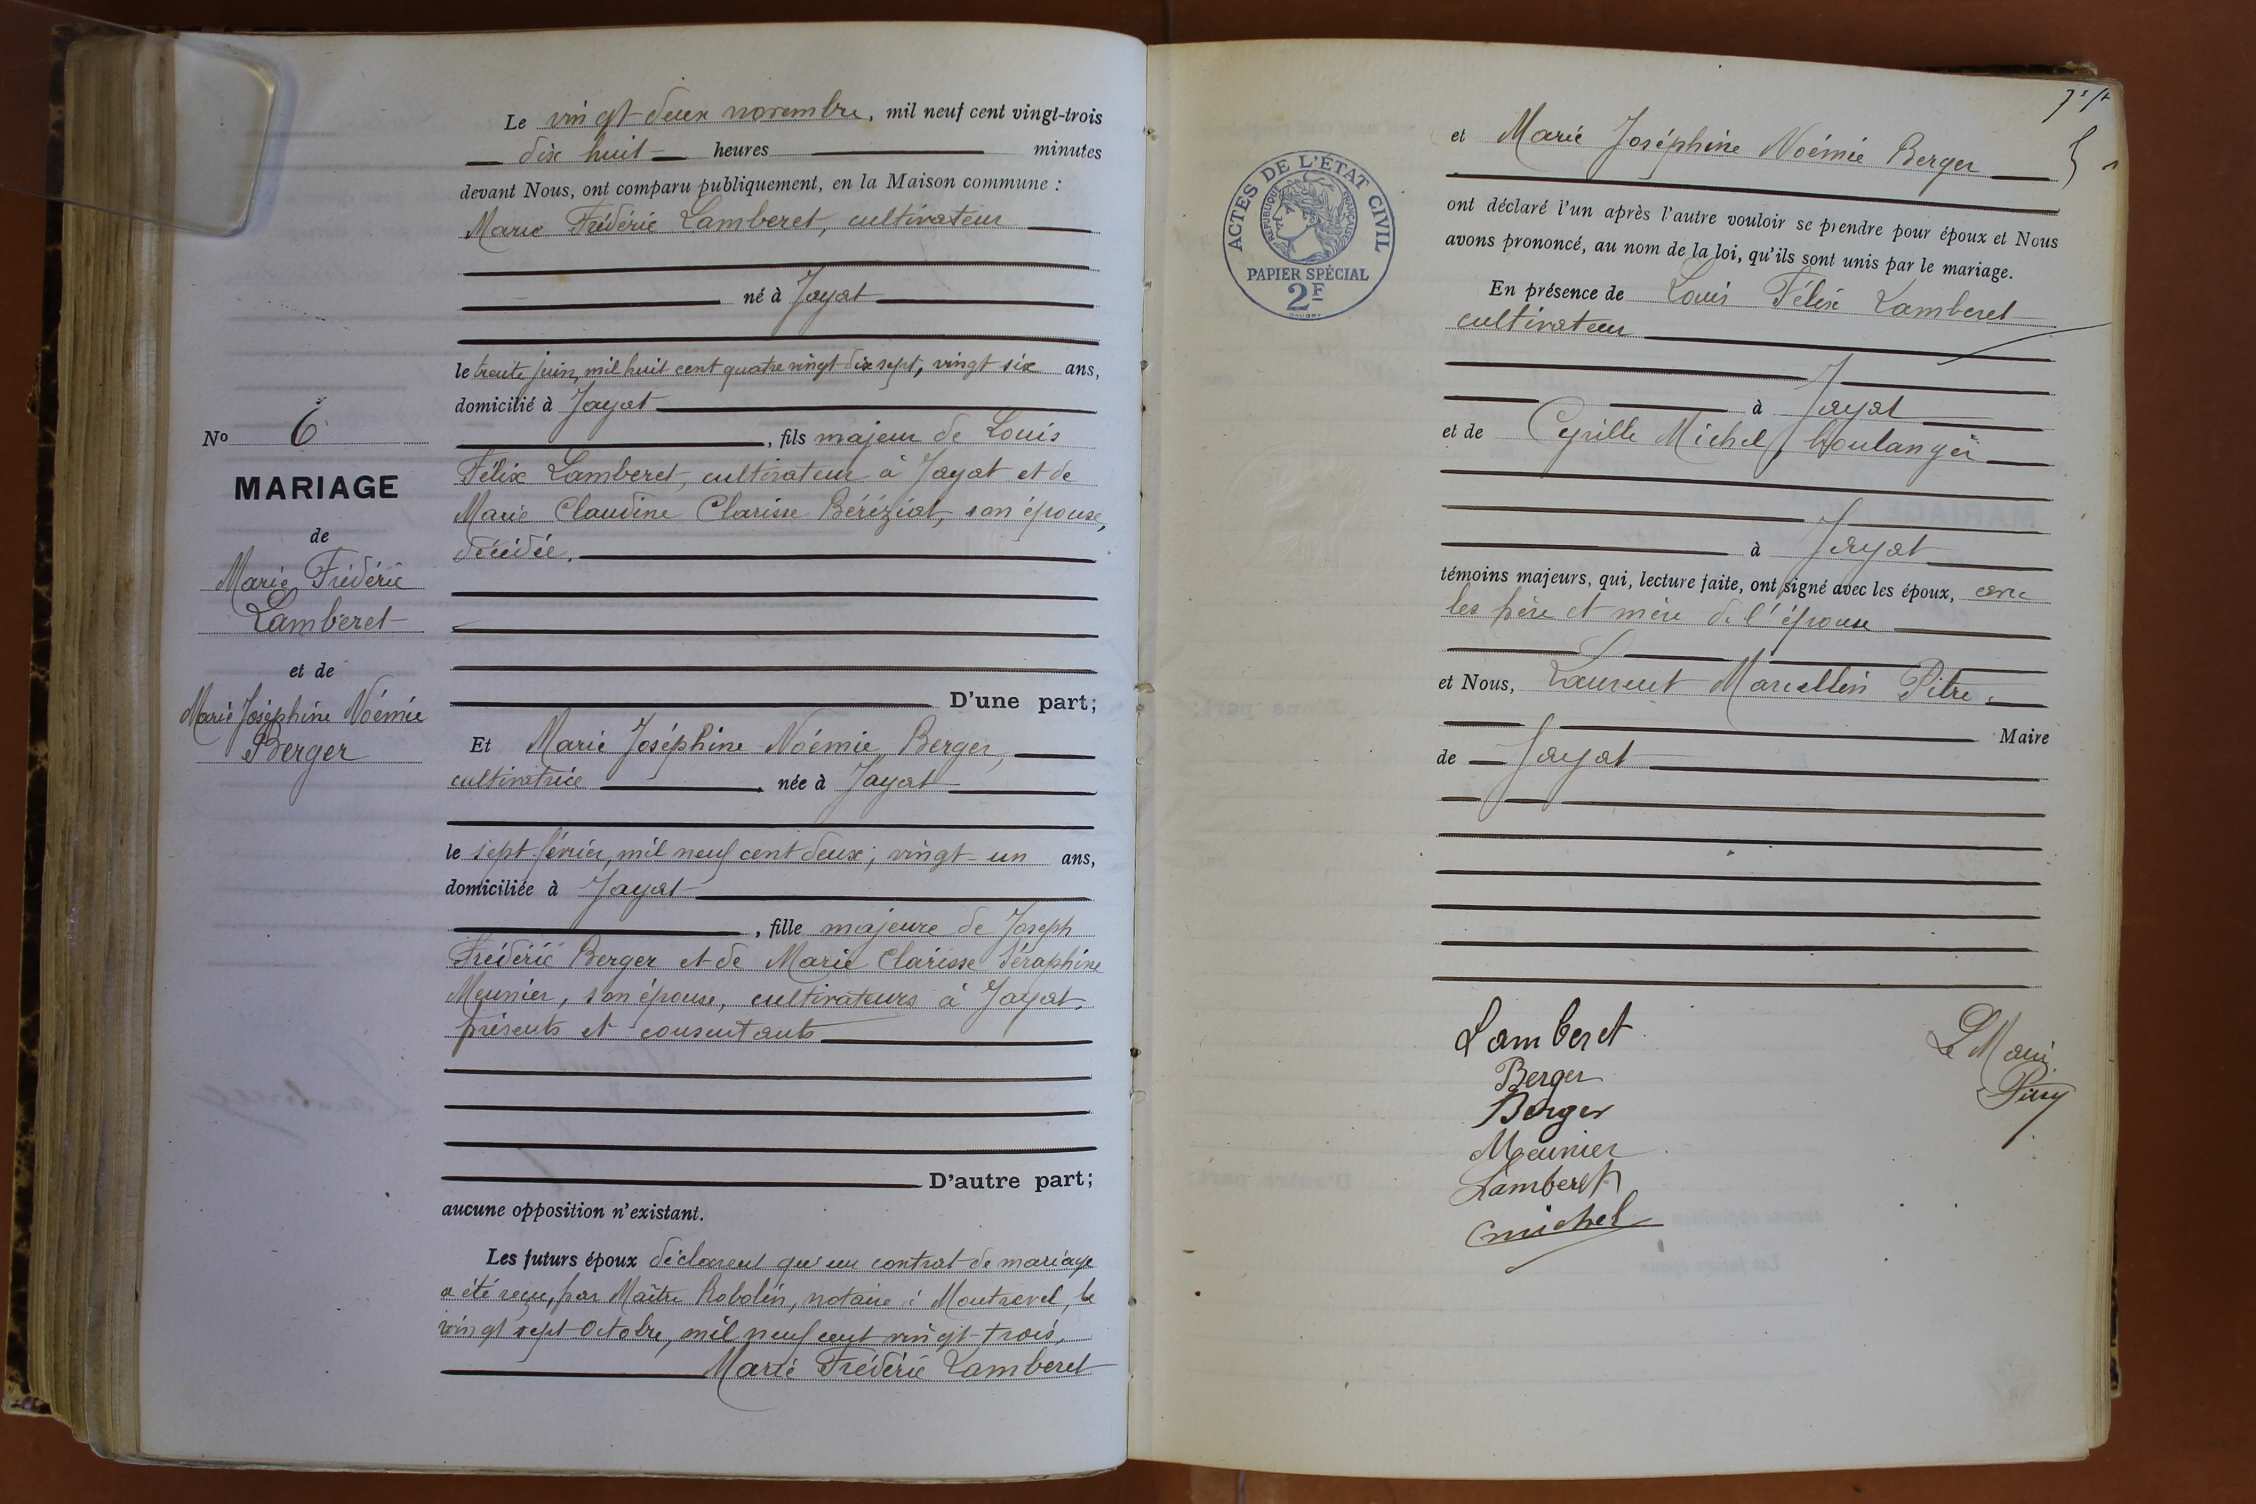 Le vingt-deux novembre, mil neuf cent vingt-trois
dix huit heures minutes
devant Nous, ont comparu publiquement, en la Maison commune :
Marie Frédéric Lamberet, cultivateur
né à Jayat
le trente juin, mil huit cent quatre vingt dix sept, vingt six ans,
domicilié à Jayat
, fils majeur de Louis
Félix Lamberet, cultivateur à Jayat et de
Marie Claudine Clarisse Béréziat, son épouse,
décédée.
D'une part;
Et Marie Joséphine Noémie Berger,
cultivatrice, née à Jayat
le sept février, mil neuf cent deux; vingt-un ans,
domiciliée à Jayat
, fille majeure de Joseph
Frédéric Berger et de Marie Clarisse Séraphine
Meunier, son épouse, cultivateurs à Jayat,
présents et consentants
D'autre part;
aucune opposition n'existant.
Les futurs époux déclarent qu'un contrat de mariage
a été reçu, par Maître Robolin, notaire à Montrevel, le
vingt sept Octobre, mil neuf cent vingt-trois.
Marie Frédéric Lamberet
No 6
MARIAGE
de
Marie Frédéric
Lamberet
et de
Marie Joséphine Noémie
Berger
ACTES DE L'ÉTAT CIVIL
RÉPUBLIQUE FRANÇAISE
PAPIER SPÉCIAL
2F
et Marie Joséphine Noémie Berger
ont déclaré l'un après l'autre vouloir se prendre pour époux et Nous
avons prononcé, au nom de la loi, qu'ils sont unis par le mariage.
En présence de Louis Félix Lamberet
cultivateur
à Jayat
et de Cyrille Michel, boulanger
à Jayat
témoins majeurs, qui, lecture faite, ont signé avec les époux, avec
les père et mère de l'épouse
et Nous, Laurent Marcellin Pitre
Maire
de Jayat
Lamberet
Berger
Berger
Meunier
Lamberet
Michel
Le Maire